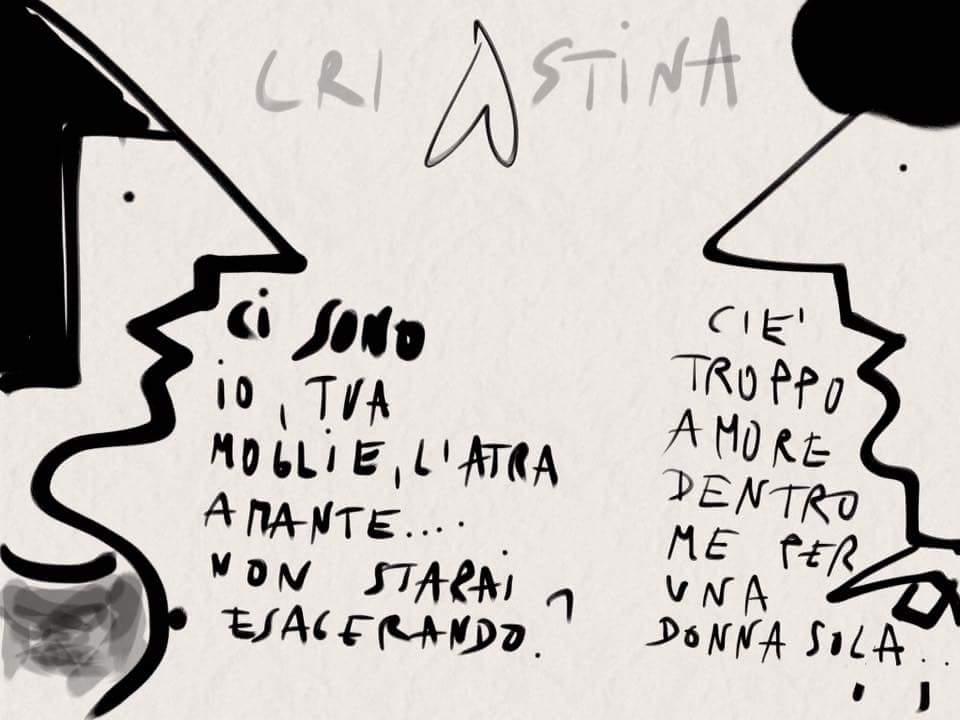 CRI STINA
Ci SONO
iO, TUA
MOGLIE, L'ATRA
AMANTE....
NON STARAI
ESAGERANDO?
C'IE'
TROPPO
AMORE
DENTRO
ME PER
UNA
DONNA SOLA...